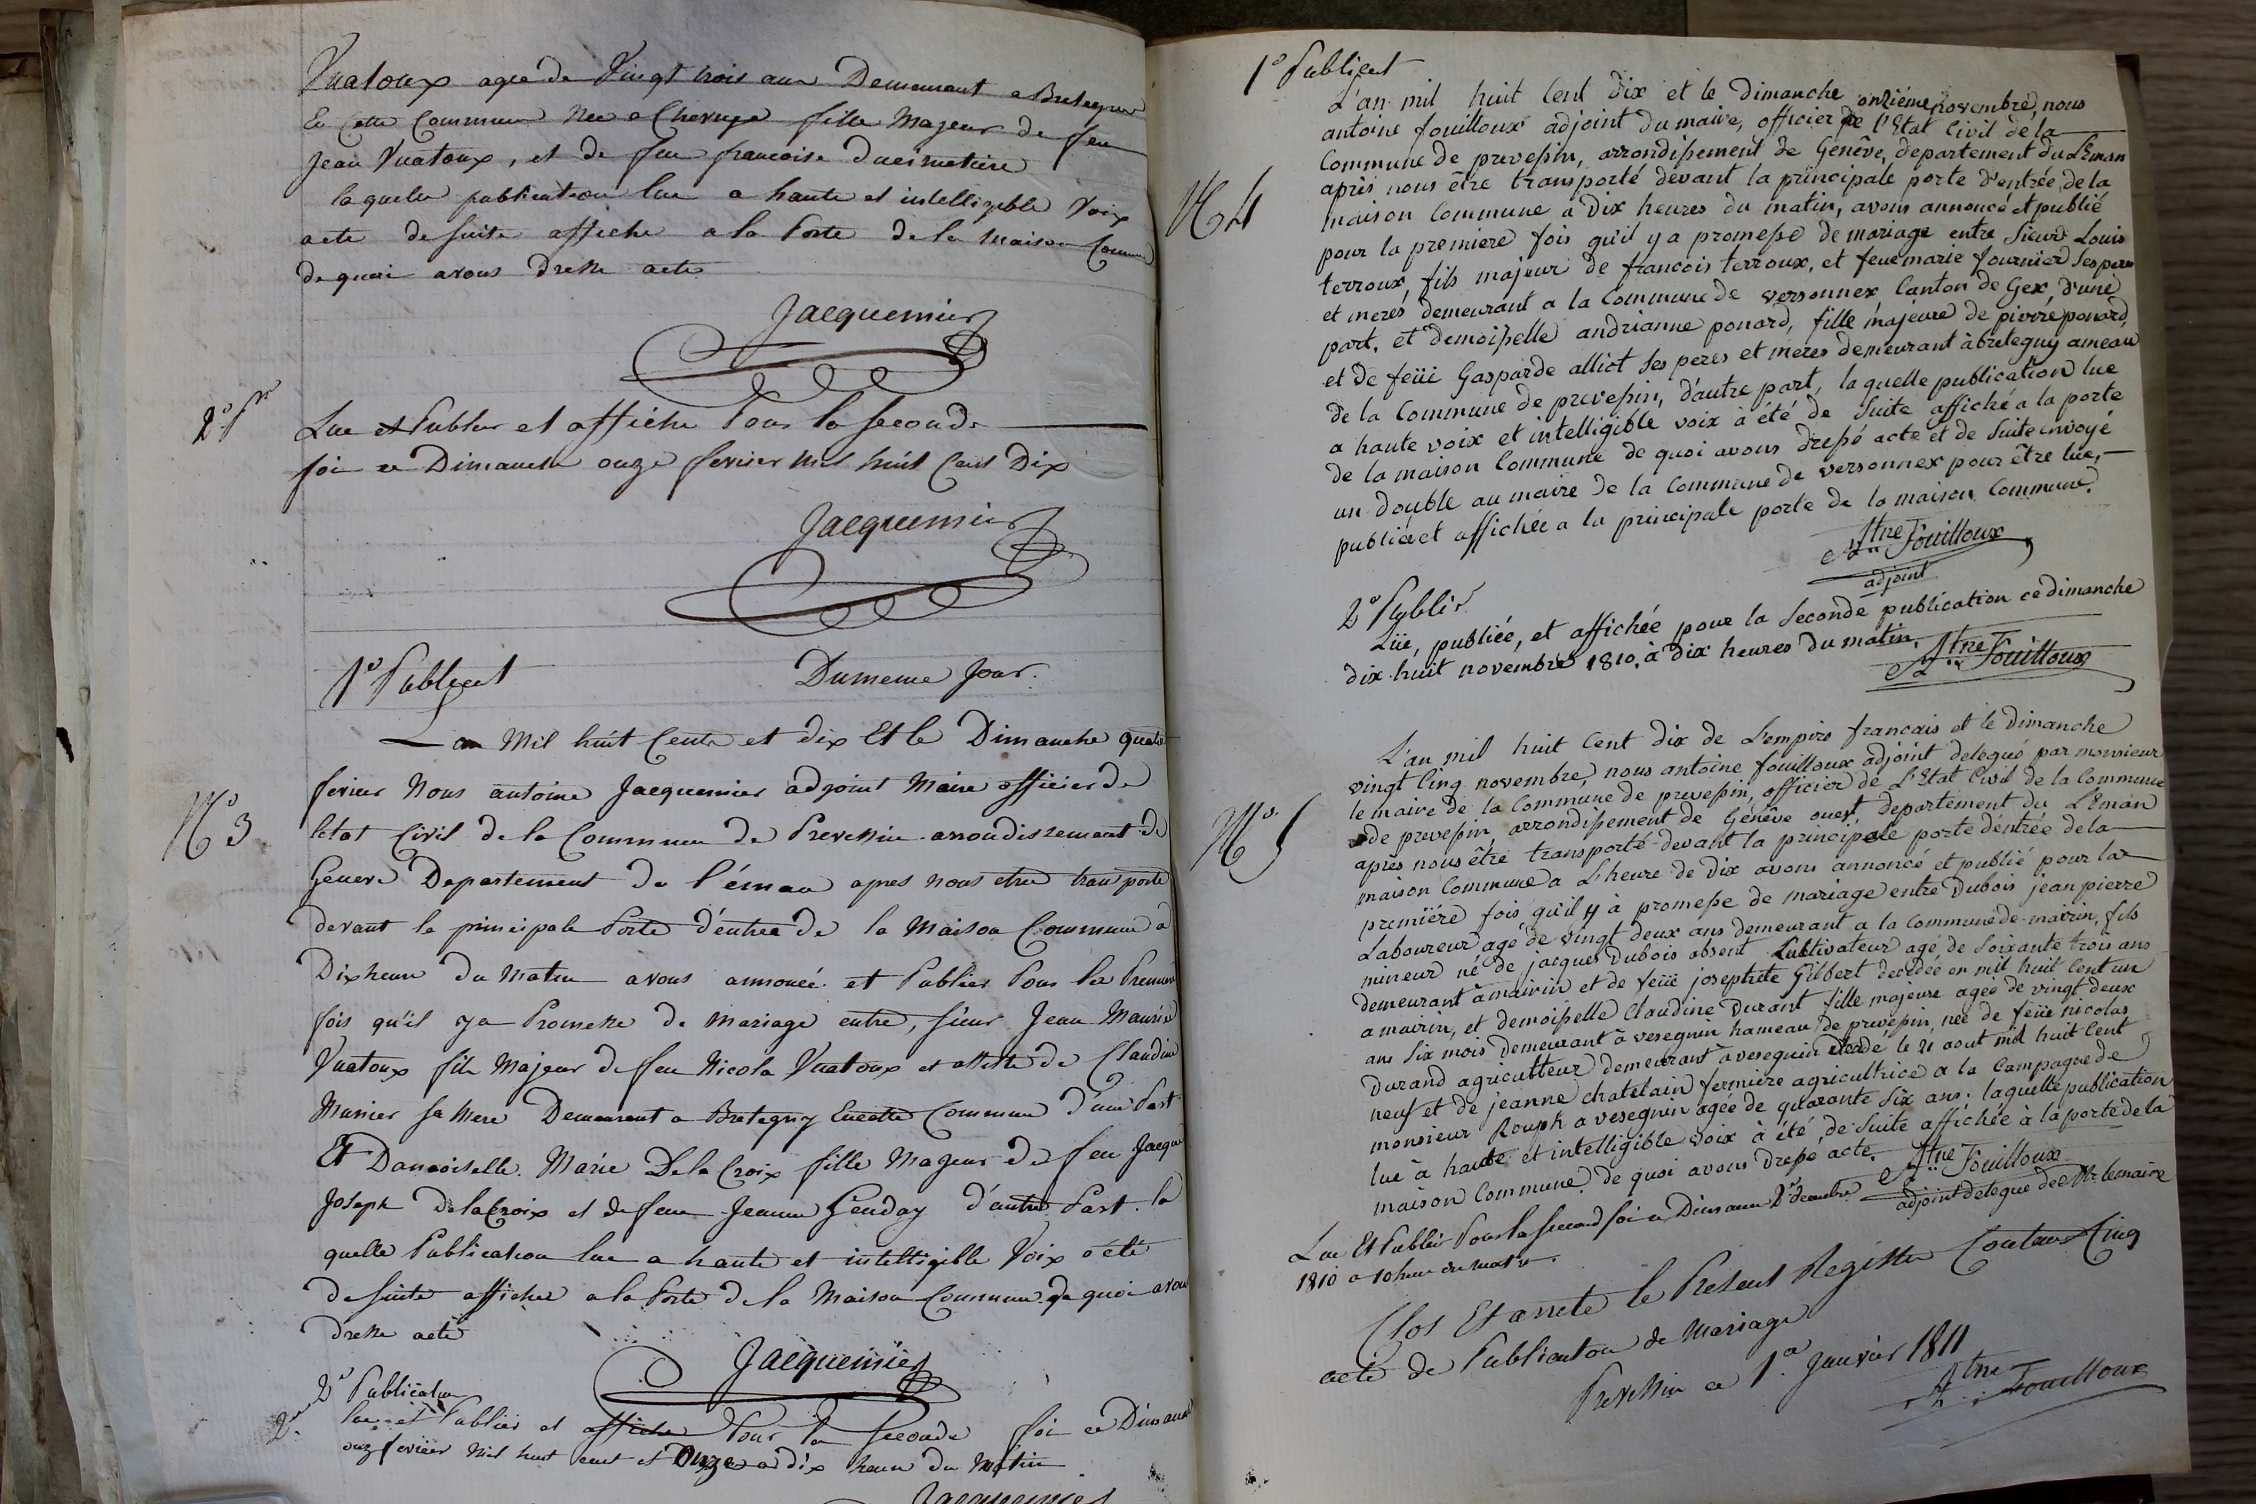 Vuatoux agée de Vingt trois ans Demeurant a Bretegny
En Cette Commune Nee a Chevrye fille Majeur de feu
Jean Vuatoux, et de feu francoise
laquelle publication lue a haute et intelligible Voix
acte de suite affiche a la Porte de la Maison Commune
de quoi avons Dresse acte
Jacquemier
Lue et Publier et affiche Pour la seconde
foi ce Dimanche onze fevrier Mil huit Cent Dix
Jacquemier
1e Publicat Dumeme Jour.
Lan Mil huit Cents et dix Et le Dimanche quatre
N° 3
fevrier Nous antoine Jacquemier adjoint Maire officier de
letat Civil de la Commune de Prevessin arrondissement de
Geneve Departement de l'éman apres nous etre transporté
devant la principale Porte d'entree De la Maison Commune a
Dix heure du Matin avons annoncé et Publier Pour la Premiere
fois qu'il ya Promesse de Mariage entre, sieur Jean Maurice
Vuatoux fils Majeur de feu Nicola Vuatoux et de Claudine
Munier sa Mere Demeurant a Bretegny Encette Commune d'une Part
Et Damoiselle. Marie De la Croix fille Majeur De feu Jacque
Joseph De la Croix et de feue Jeanne Genday d'autre Part. la
quelle Publication lue a haute et intelligible Voix a été
de suite afficher a la Porte de la Maison Commune de quoi avons
Dresse acte
Jacquemier
2e Publication
lue et Publier et affiche Pour la seconde foi ce Dimanche
onz fevrier Mil huit cent et Onze a dix heure du Matin
Jacquemier
1e Publicat
L'an mil huit Cent dix et le Dimanche onziéme novembre, nous
antoine fouilloux adjoint du maire, officier de l'Etat Civil de la
Commune de prevessin, arrondissement de Genêve, departement du Léman
N° 4
après nous être transporté devant la principale porte d'entrée, de la
maison Commune à Dix heures du matin, avons annoncé et publié
pour la premiere fois qu'il y a promesse de mariage entre sieur Louis
terroux, fils majeur de francois terroux, et feue marie fournier ses peres
et meres demeurant a la Commune de versonnex Canton de Gex, d'une
part, et demoiselle andrianne ponard, fille majeure de pierre ponard
et de feüe Gasparde alliot ses peres et meres demeurant à bretegny ameau
de la Commune de prevessin, d'autre part, laquelle publication lue
a haute voix et intelligible voix à été de suite affiché a la porte
de la maison Commune de quoi avons dressé acte et de suite envoyé
un double au maire de la Commune de versonnex pour être lue,
publié et affichée a la principale porte de la maison Commune.
Atne Fouilloux
adjoint
2e Public.
Lüe, publiée, et affichée pour la seconde publication ce dimanche
dix-huit novembre 1810, à dix heures du matin.
Atne Fouilloux
L'an mil huit Cent dix de L'empire francais et le Dimanche
vingt Cinq novembre, nous antoine fouilloux adjoint delegué par monsieur
le maire de la Commune de prevessin, officier de L'Etat Civil de la Commune
N° 5
de prevessin, arrondissement de Genêve ouest, departement du Léman
après nous être transporté devant la principale porte d'entrée de la
maison Commune a L'heure de Dix avons annoncé et publié pour la
premiére fois qu'il y à promesse de mariage entre Dubois jean pierre
Laboureur agé de vingt deux ans demeurant a la Commune de mairin, fils
mineur né de jacques Dubois absent Cultivateur agé de soixante trois ans
demeurant à mairin et de feüe josephte Gilbert decedée en mil huit Cent un
a mairin, et demoiselle Claudine Durant fille majeure agée de vingt deux
ans six mois demeurant à vesegnin hameau de prevessin, née de feüe nicolas
Durand agriculteur demeurant à vesegnin décédé le 21 aout mil huit Cent
neuf et de jeanne chatelain fermiere agricultrice a la Campagne de
monsieur Rouph a vesegnin agée de quarante six ans. laquelle publication
lue à haute et intelligible voix à été de suite affichée à la porte de la
maison Commune de quoi avons dressé acte. Atne Fouilloux
adjoint delegué de Mr le maire
Lue Et Publier Pour la second foi ce Dimanche 2e decembre
1810 a 10 heure du matin.
Clos Et arrete le Present Registre Contenant Cinq
acte de Publication de Mariage
Prevessin ce 1er Janvier 1811
Atne Fouilloux